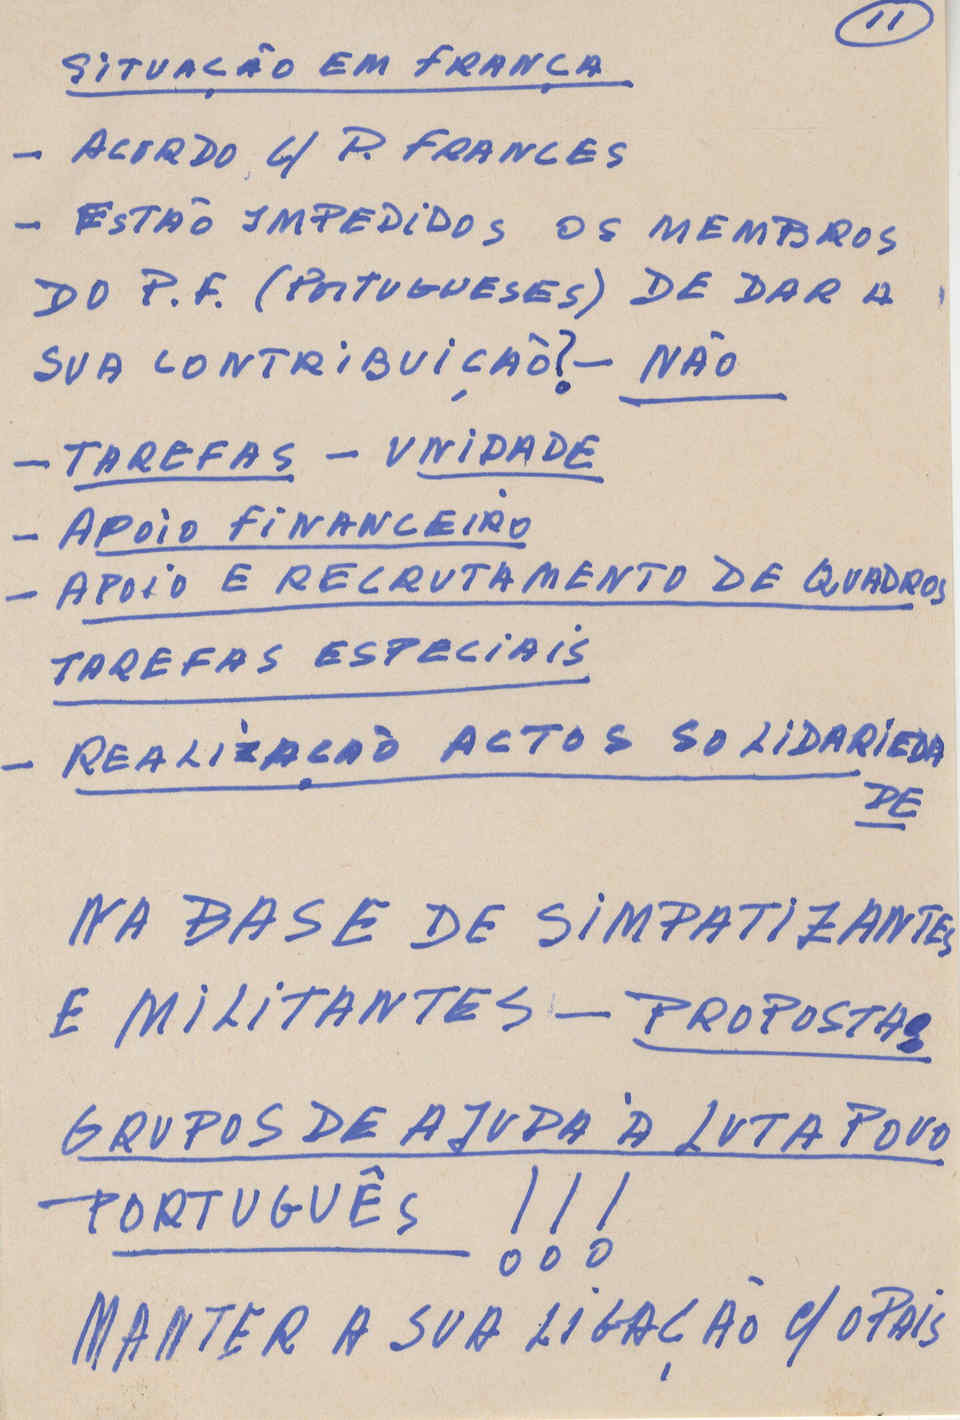 11
SITUAÇÃO EM FRANÇA
- ACORDO C/ P. FRANCES
- ESTÃO IMPEDIDOS OS MEMBROS
DO P.F. (PORTUGUESES) DE DAR A
SUA CONTRIBUIÇÃO? - NÃO
- TAREFAS - UNIDADE
- APOIO FINANCEIRO
- APOIO E RECRUTAMENTO DE QUADROS
TAREFAS ESPECIAIS
- REALIZAÇÃO ACTOS SOLIDARIEDA
DE
NA BASE DE SIMPATIZANTES
E MILITANTES - PROPOSTAS
GRUPOS DE AJUDA À LUTA POVO
- PORTUGUÊS !!!
MANTER A SUA LIGAÇÃO C/ O PAIS